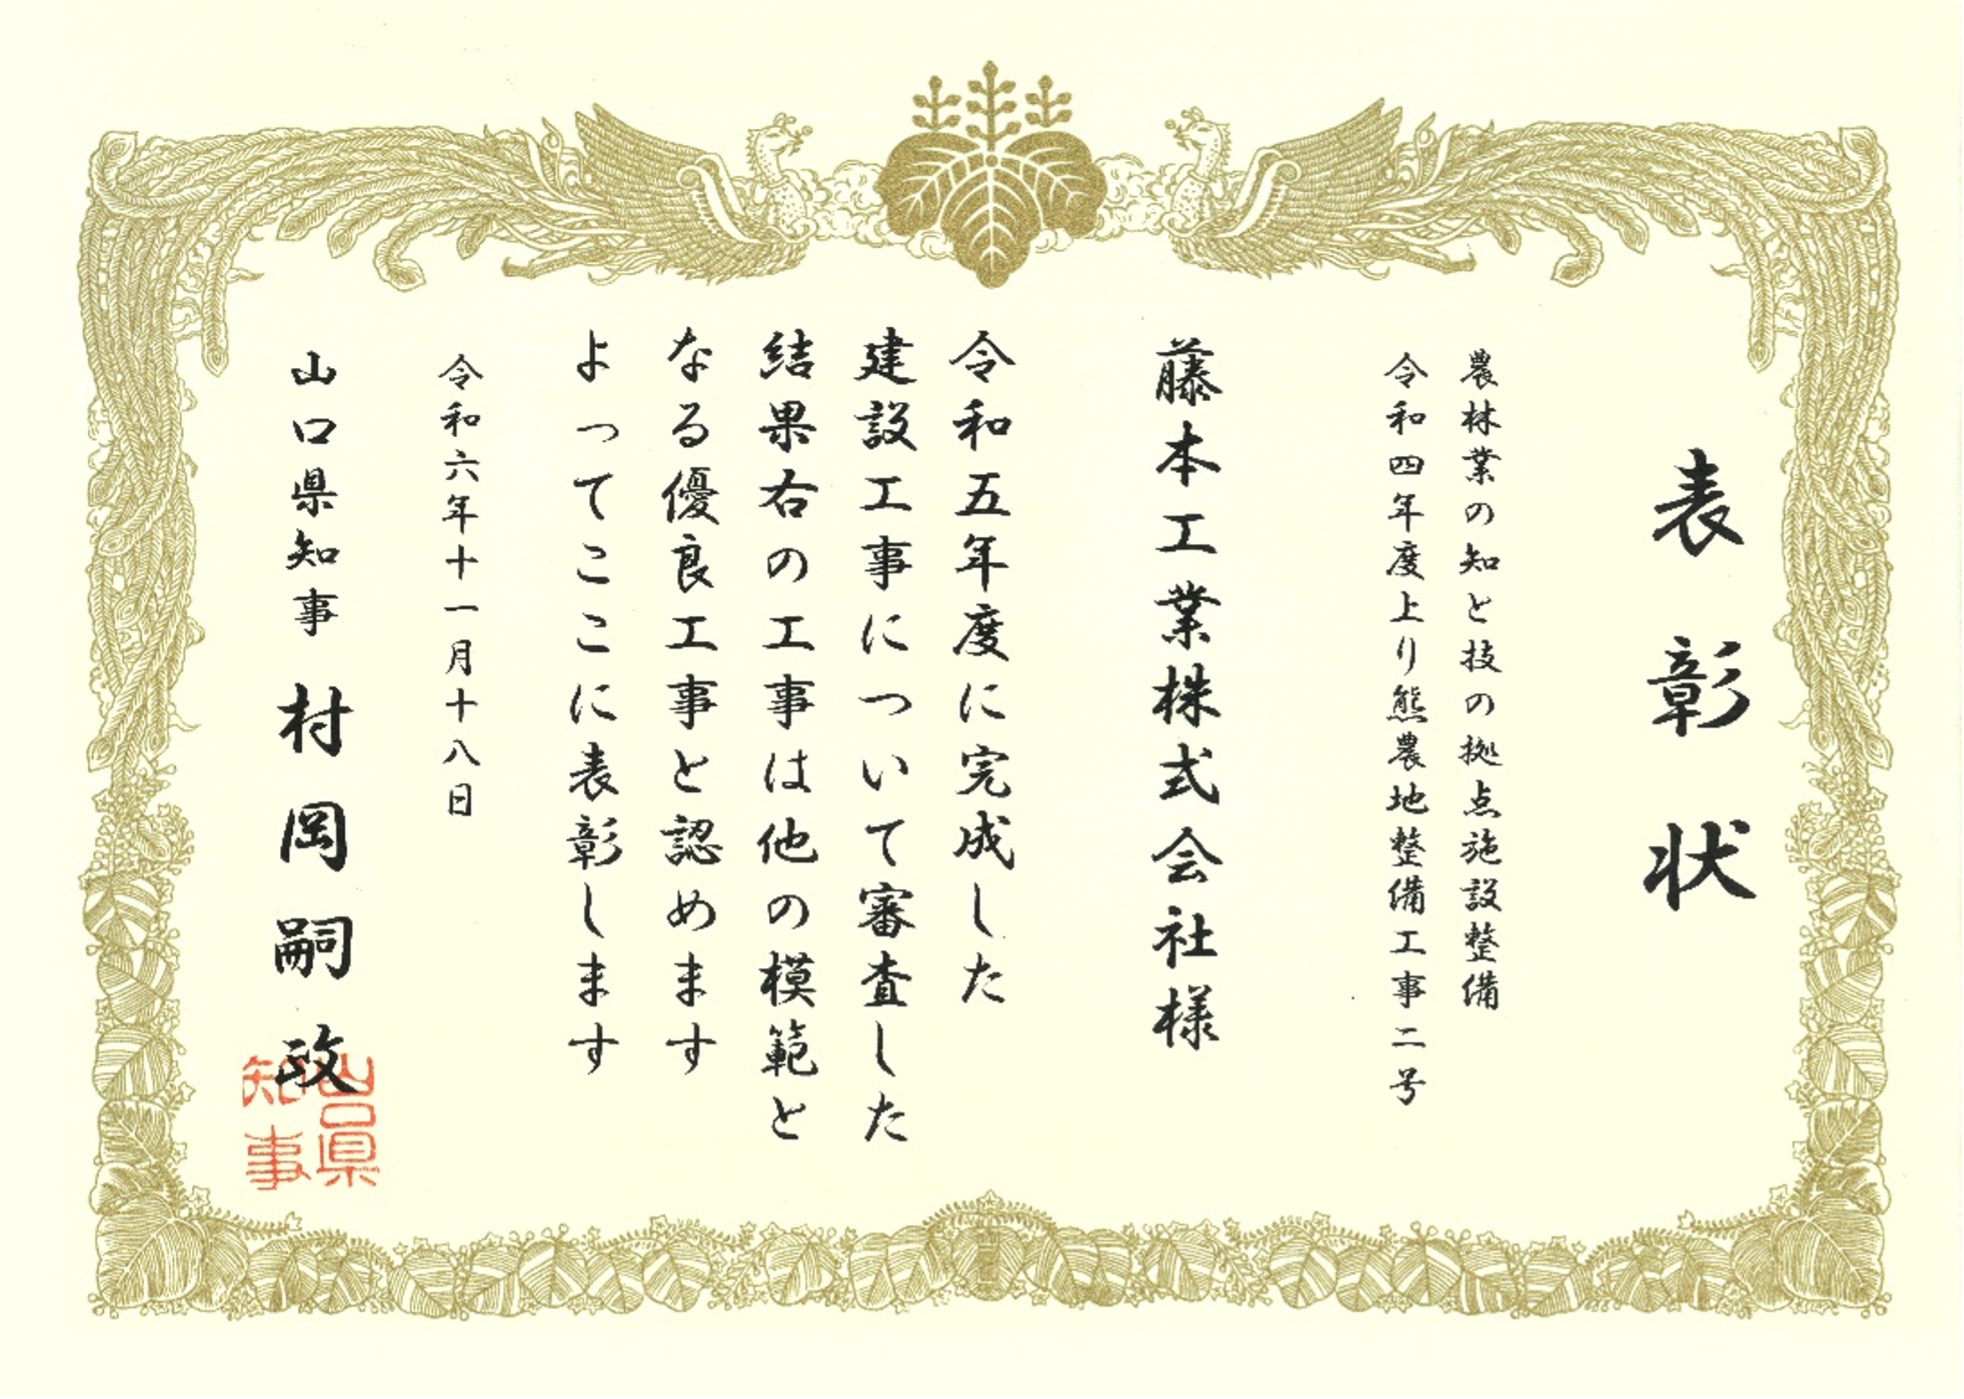 表彰状
農林業の知と技の拠点施設整備
令和四年度上り熊農地整備工事二号
藤本工業株式会社様
令和五年度に完成した
建設工事について審査した
結果右の工事は他の模範と
なる優良工事と認めます
よってここに表彰します
令和六年十一月十八日
山口県知事 村岡嗣政
山口県
知事